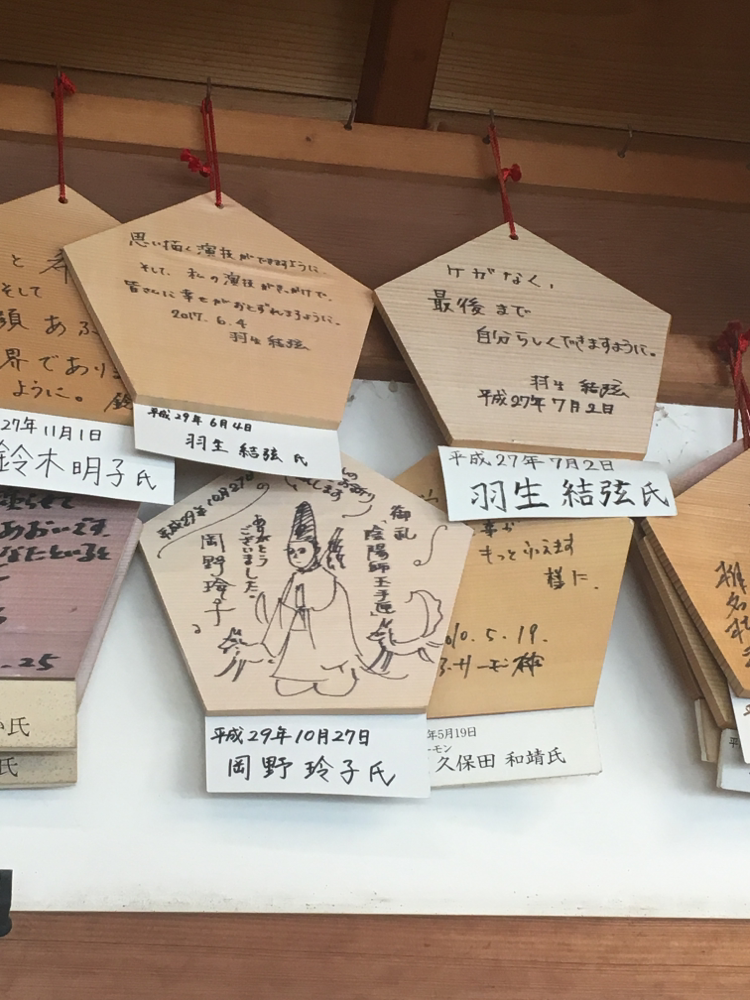 思い描く演技ができますように
そして、私の演技がきっかけで、
皆さんに幸せがおとずれますように。
2017. 6. 4
羽生 結弦
平成29年 6月4日
羽生 結弦 氏
ケガなく、
最後まで
自分らしくできますように。
羽生 結弦
平成27年7月2日
平成27年7月2日
羽生 結弦氏
そして
ように。
27年11月1日
鈴木明子氏
御礼
「陰陽師玉手匣」
ありがとう
ございました。
平成29年10月27日
岡野玲子
平成29年10月27日
岡野 玲子氏
もっとふえます
様に.
5.19.
年5月19日
ーモン
久保田 和靖氏
あおいです
.25
氏
氏